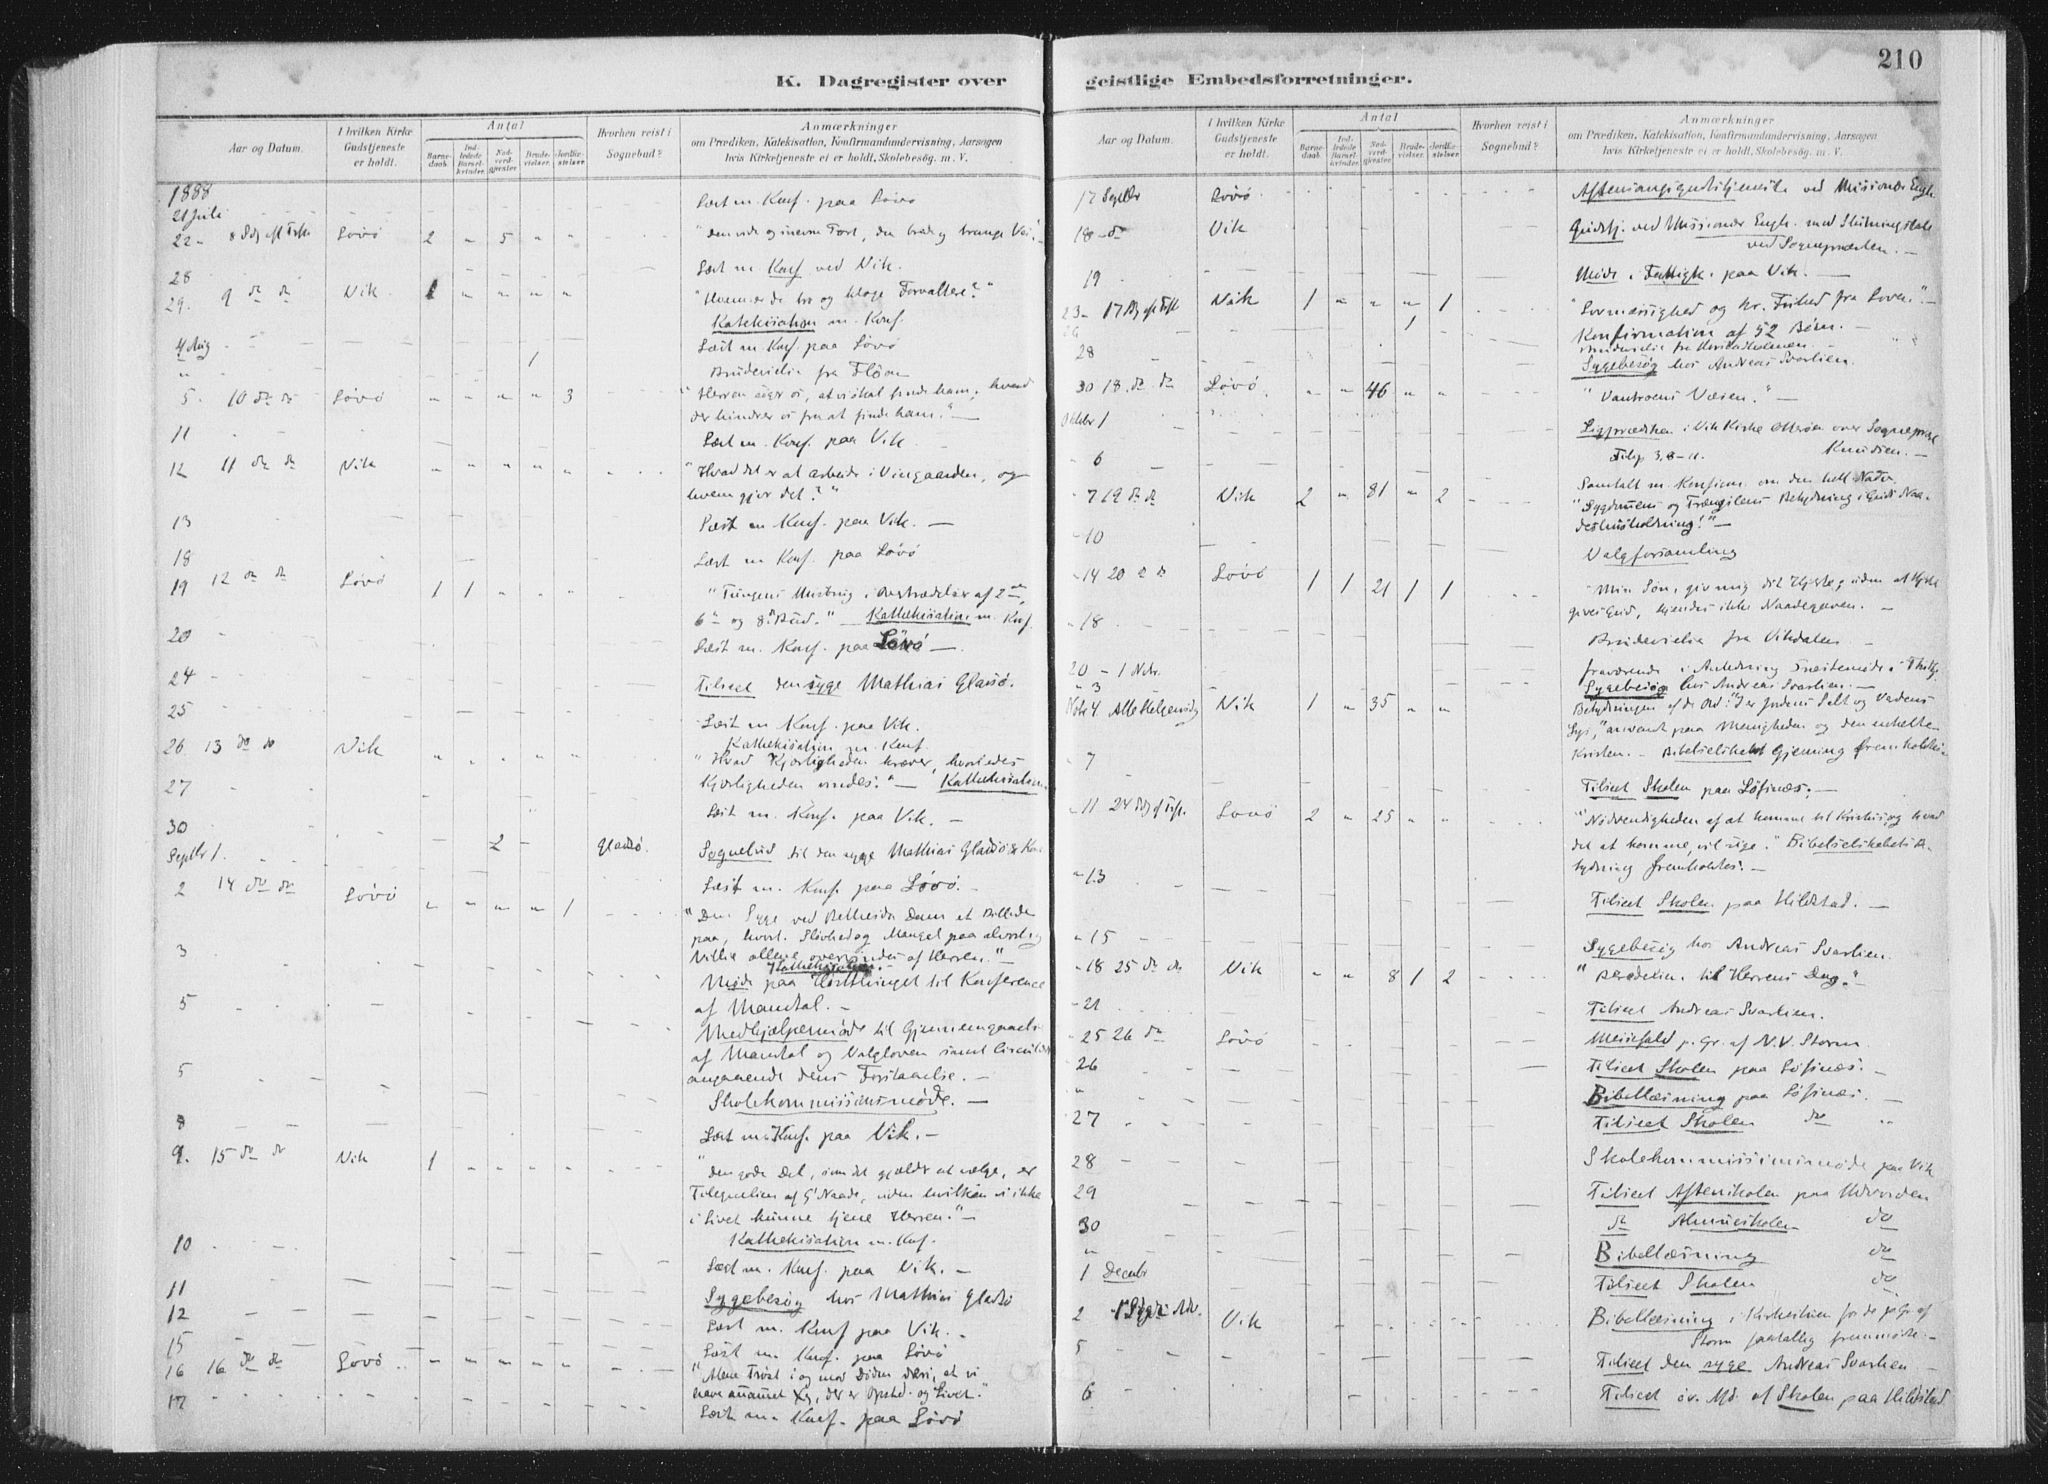 210
K. Dagregister over geistlige Embedsforretninger.
Aar og Datum. I hvilken Kirke Gudstjeneste er holdt. Antal Barnedaab. Indledede Barselkvinder. Nadverdgjester. Brudevielser. Jordfæstelser. Hvorhen reist i Sognebud? Anmærkninger om Prædiken, Katekisation, Konfirmandundervisning, Aarsagen hvis Kirketjeneste ei er holdt, Skolebesög. m. V.
1888
21 Juli Læst m. Konf. paa Løvø
22 - 8 Løvø 2 " 5 " "
28 Læst m Konf ved Vik.
29. 9 do do Vik 1 " " " " "Hvem er de tro og kloge Forvaltere?"
Katekisation m. Konf.
4 Aug Læst m. Konf. paa Løvø
" 1 Brudevielse fra Fløan
5. 10 do do Løvø " " " " 3 "Herren siger os, at vi skal finde ham, hvad
der hindrer os fra at finde ham." —
11 Læst m. Konf. paa Vik —
12 11 do do Vik " " " " " "Hvad det er at arbeide i Vingaarden, og
hvem gjør det?"
13 Læst m Konf. paa Vik. —
18 Læst m Konf paa Løvø
19 12 do do Løvø 1 1 " " " "Tungens Misbrug i Overtrædelse af 2det,
6te og 8de Bud." — Kathekisation m. Konf.
20 Læst m. Konf. paa Løvø —
24 Tilseet den syge Mathias Gladsø.
25 Læst m Konf. paa Vik.
Kathekisation m. Konf.
26 13 do do Vik " " " " " "Hvad Kjærligheden kræver, hvorledes
27 Kjærligheden vindes." — Kathekisation
Læst m. Konf. paa Vik. —
30 2 Gladsø. Sognebud til den syge Mathias Gladsø & Kone
Septbr 1. Læst m. Konf. paa Løvø. —
2 14 do do Løvø " " " " 1 "Den Syge ved Bethesda Dam et Billede
paa, hvorl. Sløvhed og Mangel paa alvorlig
Villie allene overvindes af Herren."
Kathekisation.
3 Møde paa Hosthinget til Konference
af Mandtal. —
5 Medhjælpermøde til Gjennemgaaelse
af Mandtal og Valgloven samt Circulære
angaaende dens Forstaaelse. —
5 Skolekommissionsmøde. —
8 Læst m. Konf. paa Vik. —
9. 15 do do Vik 1 " " " " "Den gode Del, som det gjælder at vælge, er
Tilegnelsen af G's Naade, uden hvilken vi ikke
i Livet kunne tjene Herren." —
Kathekisation m. Konf.
10 Læst m. Konf. paa Vik. —
11 Sygebesøg hos Mathias Gladsø
12 Læst m. Konf paa Vik. —
15 Læst m. Konf. paa Løvø
16 16 do do Løvø " " " " " "Alene Trøst i og mod Døden deri, at vi
have annamet Xs, der er Opstand. og Livet."
17 Læst m. Konf. paa Løvø
Aar og Datum. I hvilken Kirke Gudstjeneste er holdt. Antal Barnedaab. Indledede Barselkvinder. Nadverdgjester. Brudevielser. Jordfæstelser. Hvorhen reist i Sognebud? Anmærkninger om Prædiken, Katekisation, Konfirmandundervisning, Aarsagen hvis Kirketjeneste ei er holdt, Skolebesög. m. V.
17 Septbr Løvø. Aftensangsgudstjeneste ved Missionær Engh.
18 - do Vik Gudstj. ved Missionær Engh. med Slutningstale
ved Sognepræsten. —
19 Møde i Fattigk. paa Vik. —
23 - 17 Vik 1 " " " 1 "Lovmæssighed og kr. Frihed fra Loven." —
1 Konfirmation af 52 Børn. —
28 Sygebesøg hos Andreas Svarlien.
30 18. do do Løvø. " " 46 " " "Vantroens Væsen." —
Oktobr 1 Ligprædiken i Vik Kirke Otterøen over Sognepræst
Filip 3, 8-11. Knudsen. —
6 Samtale m. Konfirm. om den hell. Nadv.
7 19 do do Vik 2 " 81 " 2 "Sygdommens og Trængslens Betydning i Guds Naadeshusholdning!" —
10 Valgforsamling
14 20 do do Løvø 1 1 21 1 1 "Min Søn, giv mig dit Hjerte; uden at Hjertet
gives Gud, kjendes ikke Naadegaven. —
18 Brudevielse fra Vikdalen —
20 - 1 Nvbr. fraværende i Anledning
" 3 Sygebesøg hos Andreas Svarlien. —
Nvbr 4. Allehelgensdg Vik 1 " 35 " " Betydningen af de Ord: "I er Jordens Salt og Verdens
Lys," anvendt paa Menigheden og den enkelte
Kristen. — Bibelselskabets Gjerning fremholdtes
7 Tilseet Skolen paa Løfsnæs. —
11 24 Løvø 2 " 25 " " "Nødvendigheden af at komme til Kristus, og hvad
det at komme, vil sige." Bibelselskabets Betydning fremholdtes. —
13 Tilseet Skolen paa Hildstad. —
15 Sygebesøg hos Andreas Svarlien.
18 25 do do Vik " " 8 1 2 "Beredelsen til Herrens Dag." —
21 Tilseet Andreas Svarlien.
25 26 do Løvø Messefald p. Gr. af N.V. Storm.
26 Tilseet Skolen paa Løfsnæs. —
" Bibellæsning paa Løfsnæs. —
27 Tilseet Skolen do "
28 Skolekommissionsmøde paa Vik
29 Tilseet Aftenskolen paa Udvorden
30 do Almueskolen do
" Bibellæsning do
1 Decbr Tilseet Skolen do
2 1 Søgn. Adv. Vik Bibellæsning i Kirkestuen for de p. Gr. af
Storm faatallig fremmødte. —
5 Tilseet den syge Andreas Svarlien —
6 Tilseet øv. Afd. af Skolen paa Hildstad.